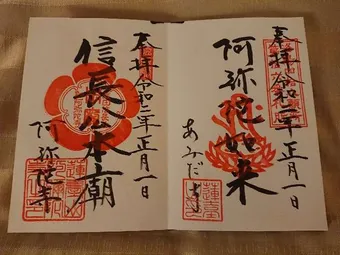 奉拝 令和二年 正月一日
阿弥陀如来
あみだ寺
奉拝 令和二年 正月一日
信長公本廟
阿弥陀寺